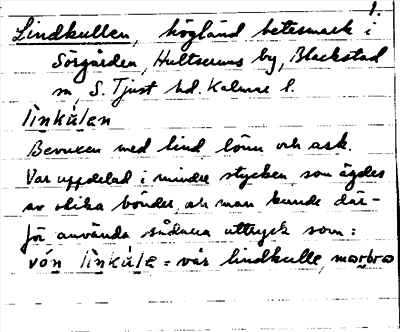 Lindkullen, högländ betesmark i
Sörgården, Hultserums by, Blackstad
sn, S. Tjust hd. Kalmar l.
lìnkúlen
Bevuxen med lind lönn och ask.
Var uppdelad i mindre stycken, som ägdes
av olika bönder, och man kunde där-
för använda sådana uttryck som:
vón lìnkúle = vår lindkulle, morbro